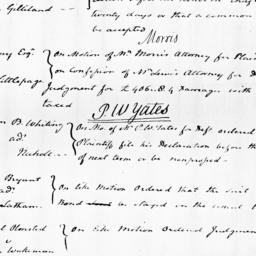 Gilliland
twenty days or that a common
be accepted
Morris
ny Esqr. On Motion of Mr. Morris Attorney for Plain
on Confession of Mr. Lewis Attorney for D
Littlepage Judgment for £ 406.. 8. 4 Damages with
taxed
P. W. Yates
n B. Whiting On Mo. of Mr. P. W. Yates for Deft ordered
ads. Plaintiff file his Declaration before the
Nicholl of next term or be nonprossed
Bryant On like Motion Ordered that the Bail
ads.
Latham Bond be stayed in the
l Olmsted On like Motion Ordered Judgmen
v
Wakeman